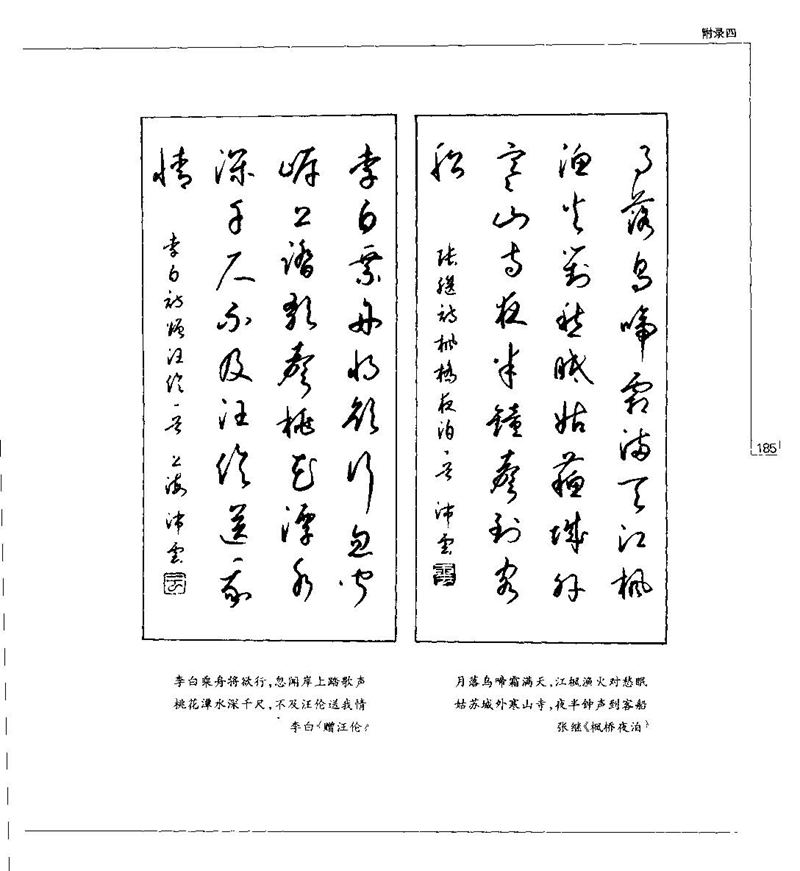 附录四
月落烏啼霜满天江楓
漁火對愁眠姑蘇城外
寒山寺夜半鐘聲到客
船
張繼詩楓橋夜泊一首 沛雲
李白乘舟将欲行忽聞
岸上踏歌聲桃花潭水
深千尺不及汪倫送我
情
李白詩贈汪倫一首 上海沛雲
185
李白乘舟将欲行,忽闻岸上踏歌声
桃花潭水深千尺,不及汪伦送我情
李白《赠汪伦》
月落乌啼霜满天,江枫渔火对愁眠
姑苏城外寒山寺,夜半钟声到客船
张继《枫桥夜泊》